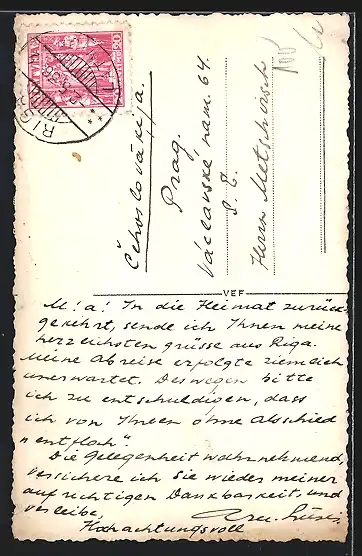 LATVIJA
RIGA
Čehoslovāķija.
Prag.
Václavské nam. 64.
Herrn Metscharsch
VEF
M! a! In die Heimat zurück
gekehrt, sende ich Ihnen meine
herzlichsten grüsse aus Riga.
Meine Abreise erfolgte ziemlich
unerwartet. Deswegen bitte
ich zu entschuldigen, dass
ich von Ihnen ohne Abschied
"entfloch".
Die Gelegenheit wahrnehmend,
versichere ich Sie wieder meiner
aufrichtigen Dankbarkeit, und
verbleibe,
Hochachtungsvoll